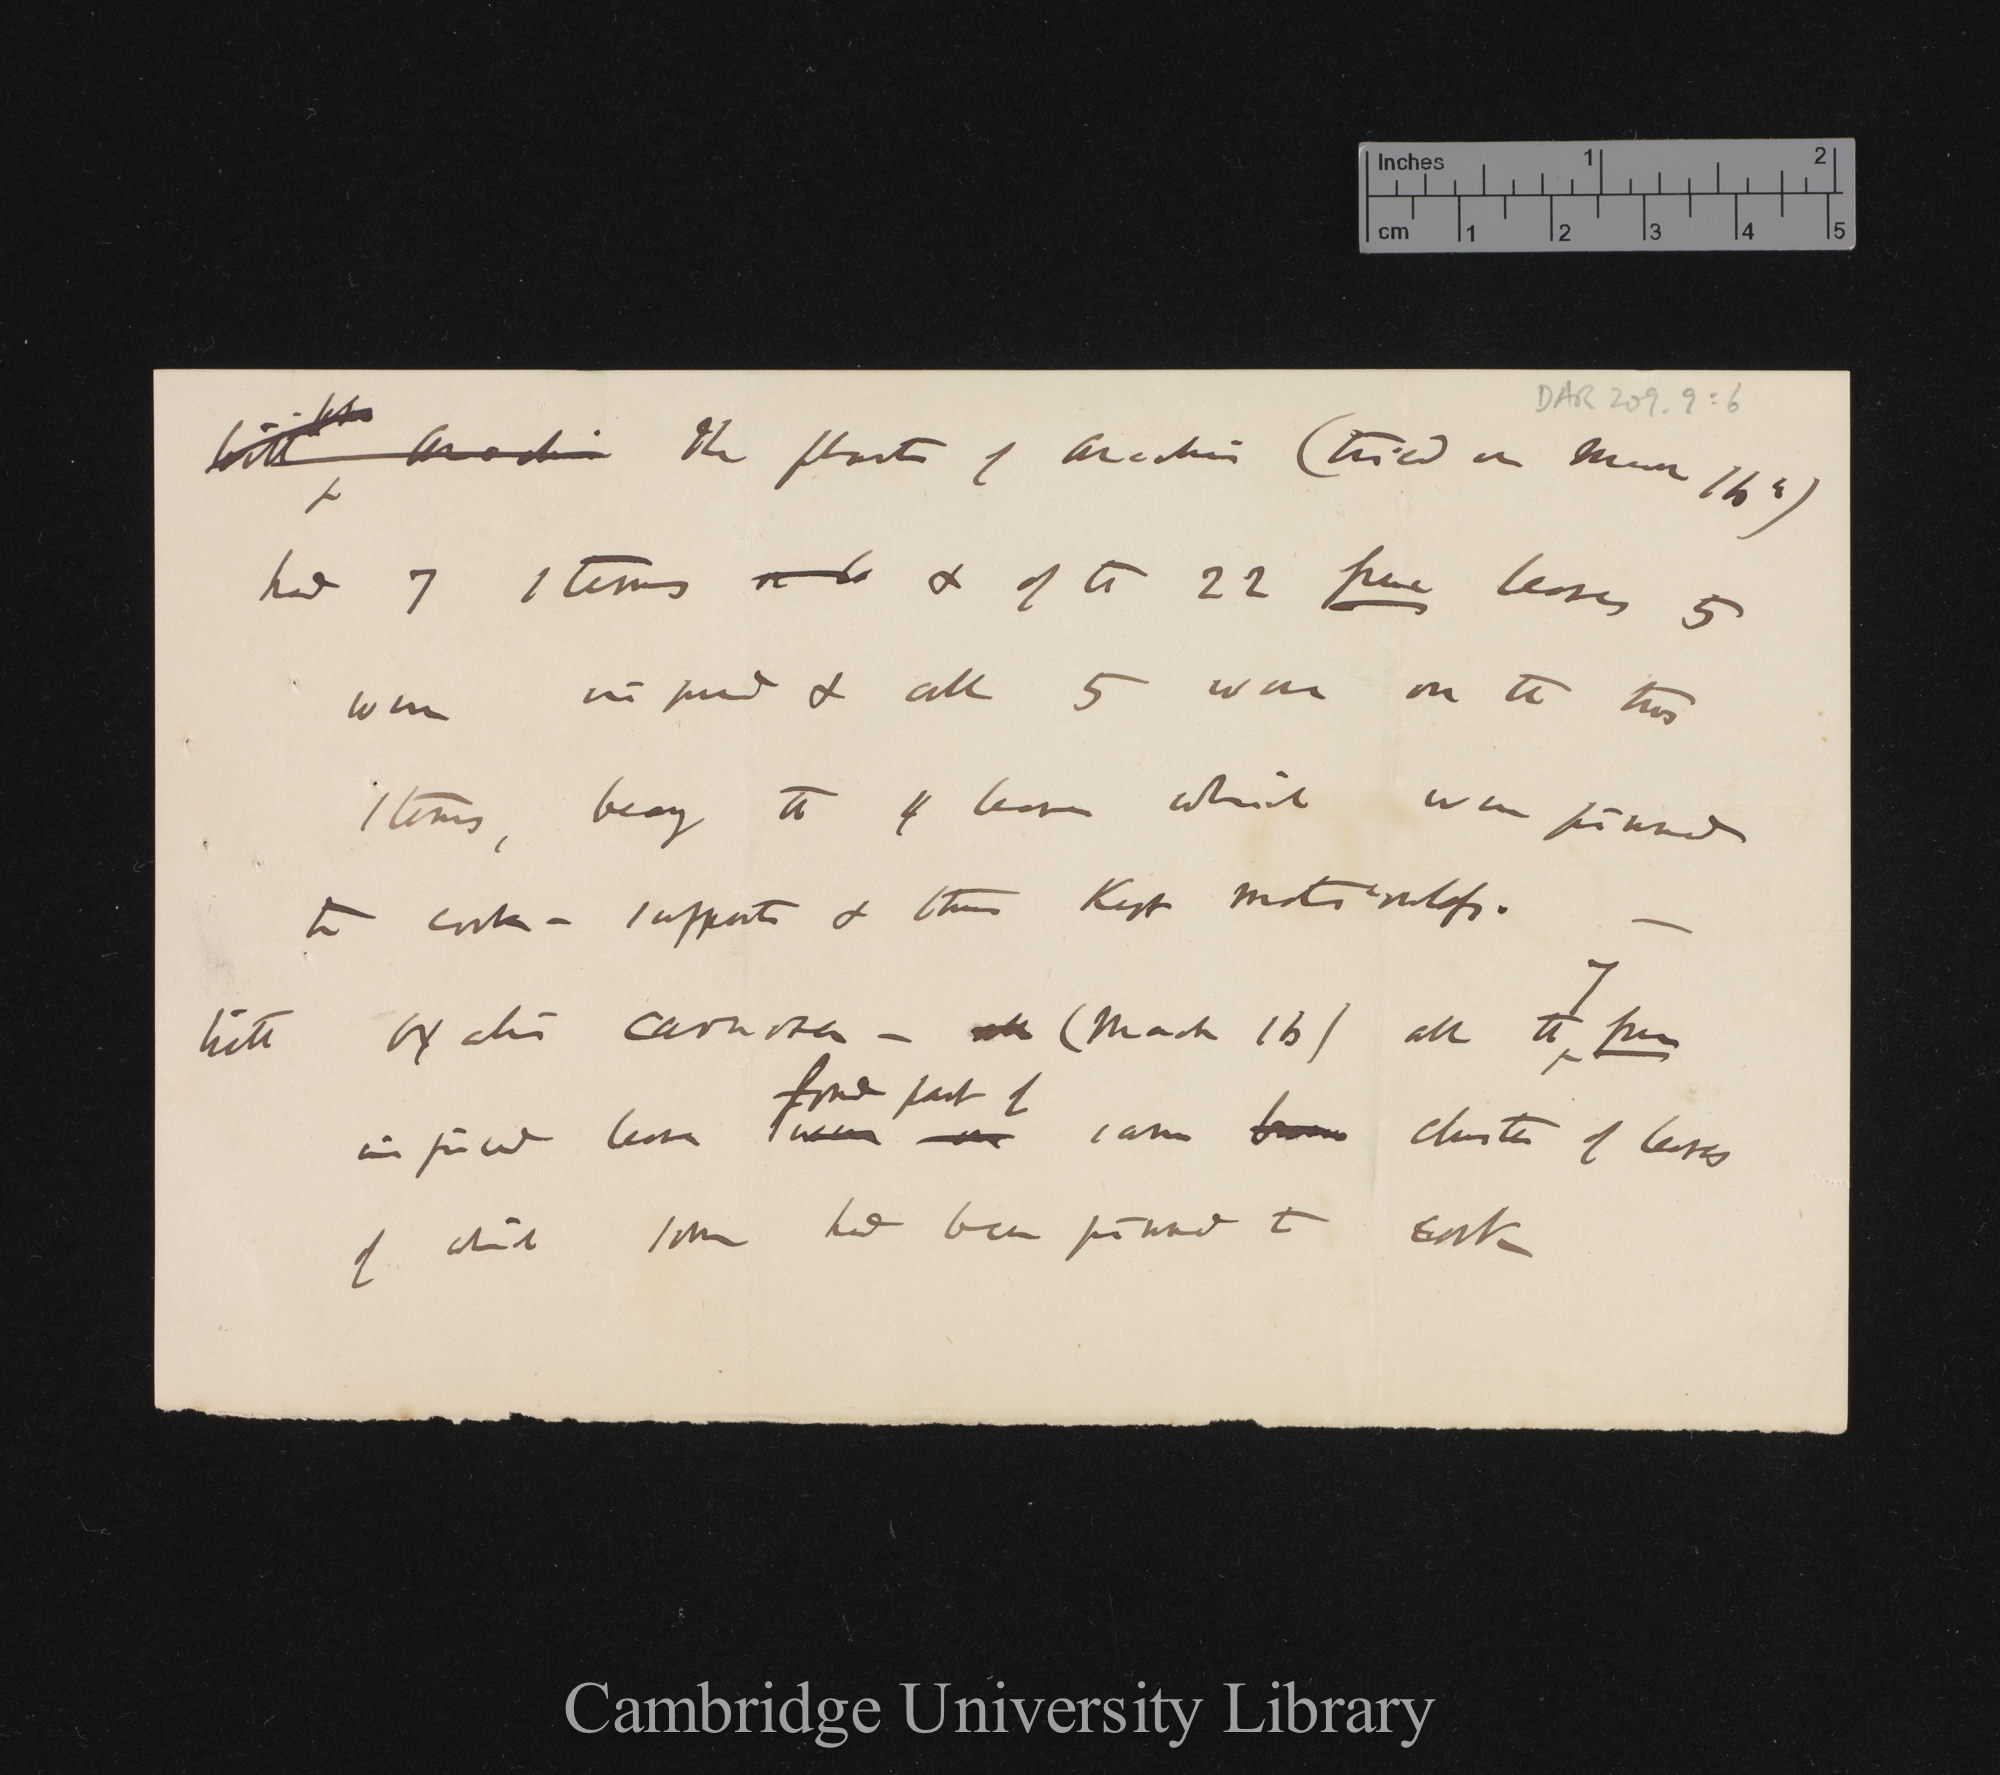 Inches 1 2
cm 1 2 3 4 5
DAR 209.9:6
With the Arachis The plants of Arachis (tried on March 16th)
had 7 stems & of the 22 free leaves 5
were injured & all 5 were on the two
stems, bearing the 4 leaves which were pinned
to cork-supports & thus kept motionless. —
7
With Oxalis carnosa – all (March 16) all the free
formed part of
injured leaves were on same cluster of leaves
of which some had been pinned to cork
Cambridge University Library